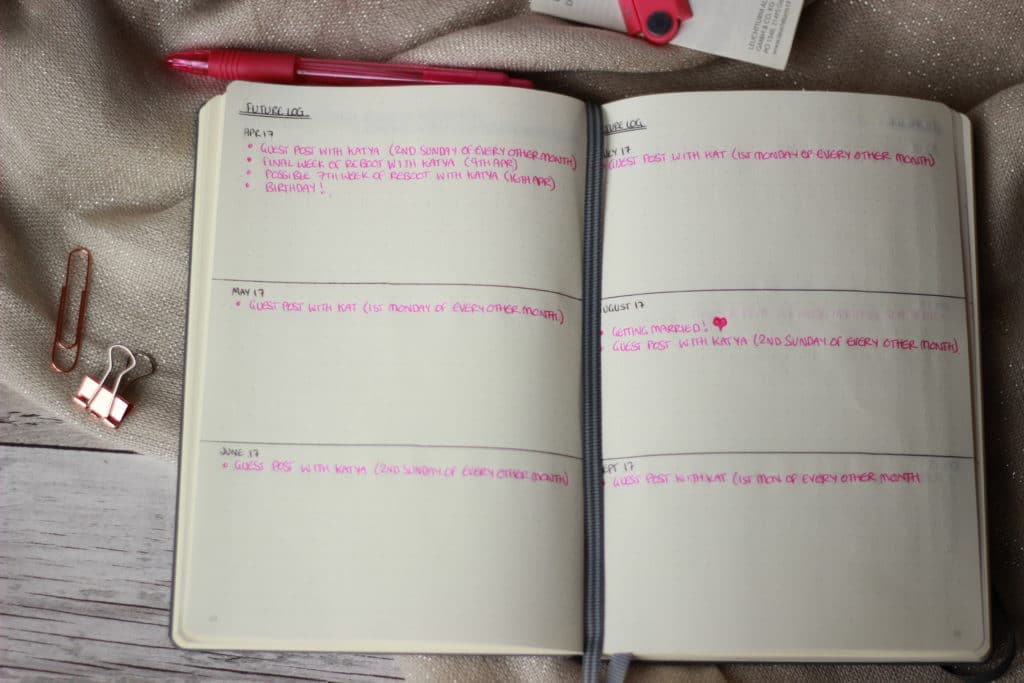 FUTURE LOG
APR 17
• GUEST POST WITH KATYA (2ND SUNDAY OF EVERY OTHER MONTH)
• FINAL WEEK OF REBOOT WITH KATYA (9TH APR)
• POSSIBLE 7TH WEEK OF REBOOT WITH KATYA (16TH APR)
• BIRTHDAY!
MAY 17
• GUEST POST WITH KAT (1ST MONDAY OF EVERY OTHER MONTH)
JUNE 17
• GUEST POST WITH KATYA (2ND SUNDAY OF EVERY OTHER MONTH)
TURE LOG
LY 17
GUEST POST WITH KAT (1ST MONDAY OF EVERY OTHER MONTH)
UGUST 17
• GETTING MARRIED!
• GUEST POST WITH KATYA (2ND SUNDAY OF EVERY OTHER MONTH)
EPT 17
• GUEST POST WITH KAT (1ST MON OF EVERY OTHER MONTH
LEUCHTTURM
GMBH & CO. KG